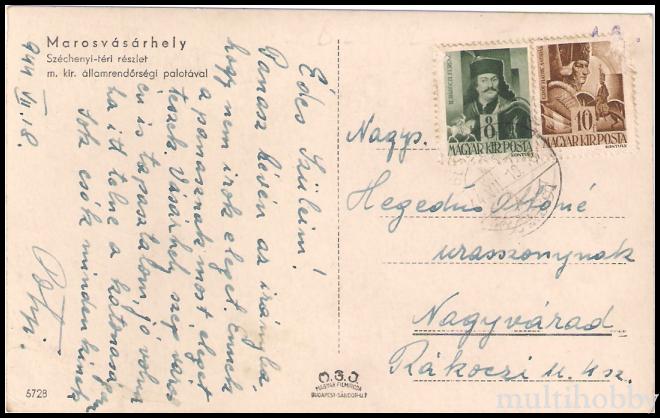 Marosvásárhely
Széchenyi-téri részlet
m. kir. államrendőrségi palotával
944 VII. 18.
Édes Szüleim!
Panasz kévén az irányba
hogy nem irok eleget. Ennek
a panasznak most eleget
teszek. Vásárhely szép város
én is tapasztalom, jó volna
ha itt telne a katonaság
Sok csók mindenkinek
Nagys.
Hegedüs Ottóné
urasszonynak
Nagyvárad
Rákóczi u. 4 sz.
II. RÁKÓCZI FERENC
8
MAGYAR KIR. POSTA
10
MAGYAR KIR. POSTA
MAGYAR FILMIRODA
BUDAPEST-SÁNDOR-U.7
5728
multihobby